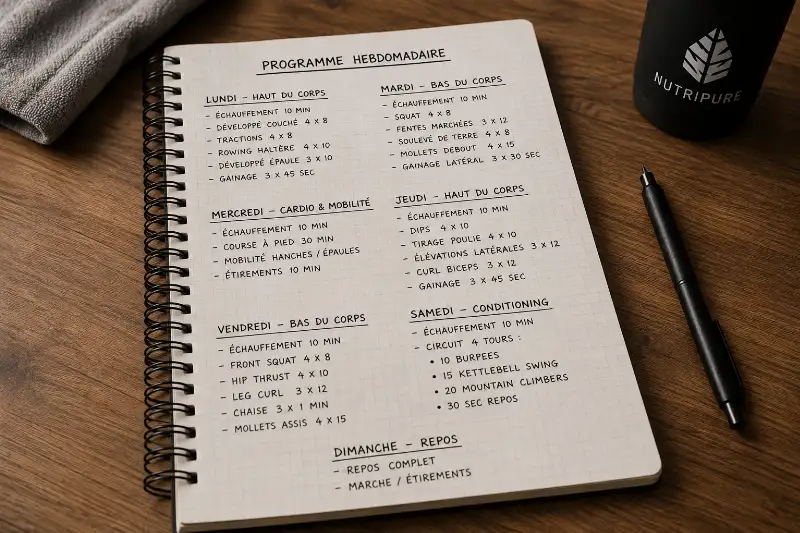 PROGRAMME HEBDOMADAIRE
LUNDI – HAUT DU CORPS
- ÉCHAUFFEMENT 10 MIN
- DÉVELOPPÉ COUCHÉ 4 x 8
- TRACTIONS 4 x 8
- ROWING HALTÈRE 4 x 10
- DÉVELOPPÉ ÉPAULE 3 x 10
- GAINAGE 3 x 45 SEC
MARDI – BAS DU CORPS
- ÉCHAUFFEMENT 10 MIN
- SQUAT 4 x 8
- FENTES MARCHÉES 3 x 12
- SOULEVÉ DE TERRE 4 x 8
- MOLLETS DEBOUT 4 x 15
- GAINAGE LATÉRAL 3 x 30 SEC
MERCREDI – CARDIO & MOBILITÉ
- ÉCHAUFFEMENT 10 MIN
- COURSE À PIED 30 MIN
- MOBILITÉ HANCHES / ÉPAULES
- ÉTIREMENTS 10 MIN
JEUDI – HAUT DU CORPS
- ÉCHAUFFEMENT 10 MIN
- DIPS 4 x 10
- TIRAGE POULIE 4 x 10
- ÉLÉVATIONS LATÉRALES 3 x 12
- CURL BICEPS 3 x 12
- GAINAGE 3 x 45 SEC
VENDREDI – BAS DU CORPS
- ÉCHAUFFEMENT 10 MIN
- FRONT SQUAT 4 x 8
- HIP THRUST 4 x 10
- LEG CURL 3 x 12
- CHAISE 3 x 1 MIN
- MOLLETS ASSIS 4 x 15
SAMEDI – CONDITIONING
- ÉCHAUFFEMENT 10 MIN
- CIRCUIT 4 TOURS :
• 10 BURPEES
• 15 KETTLEBELL SWING
• 20 MOUNTAIN CLIMBERS
• 30 SEC REPOS
DIMANCHE – REPOS
- REPOS COMPLET
- MARCHE / ÉTIREMENTS
NUTRIPURE